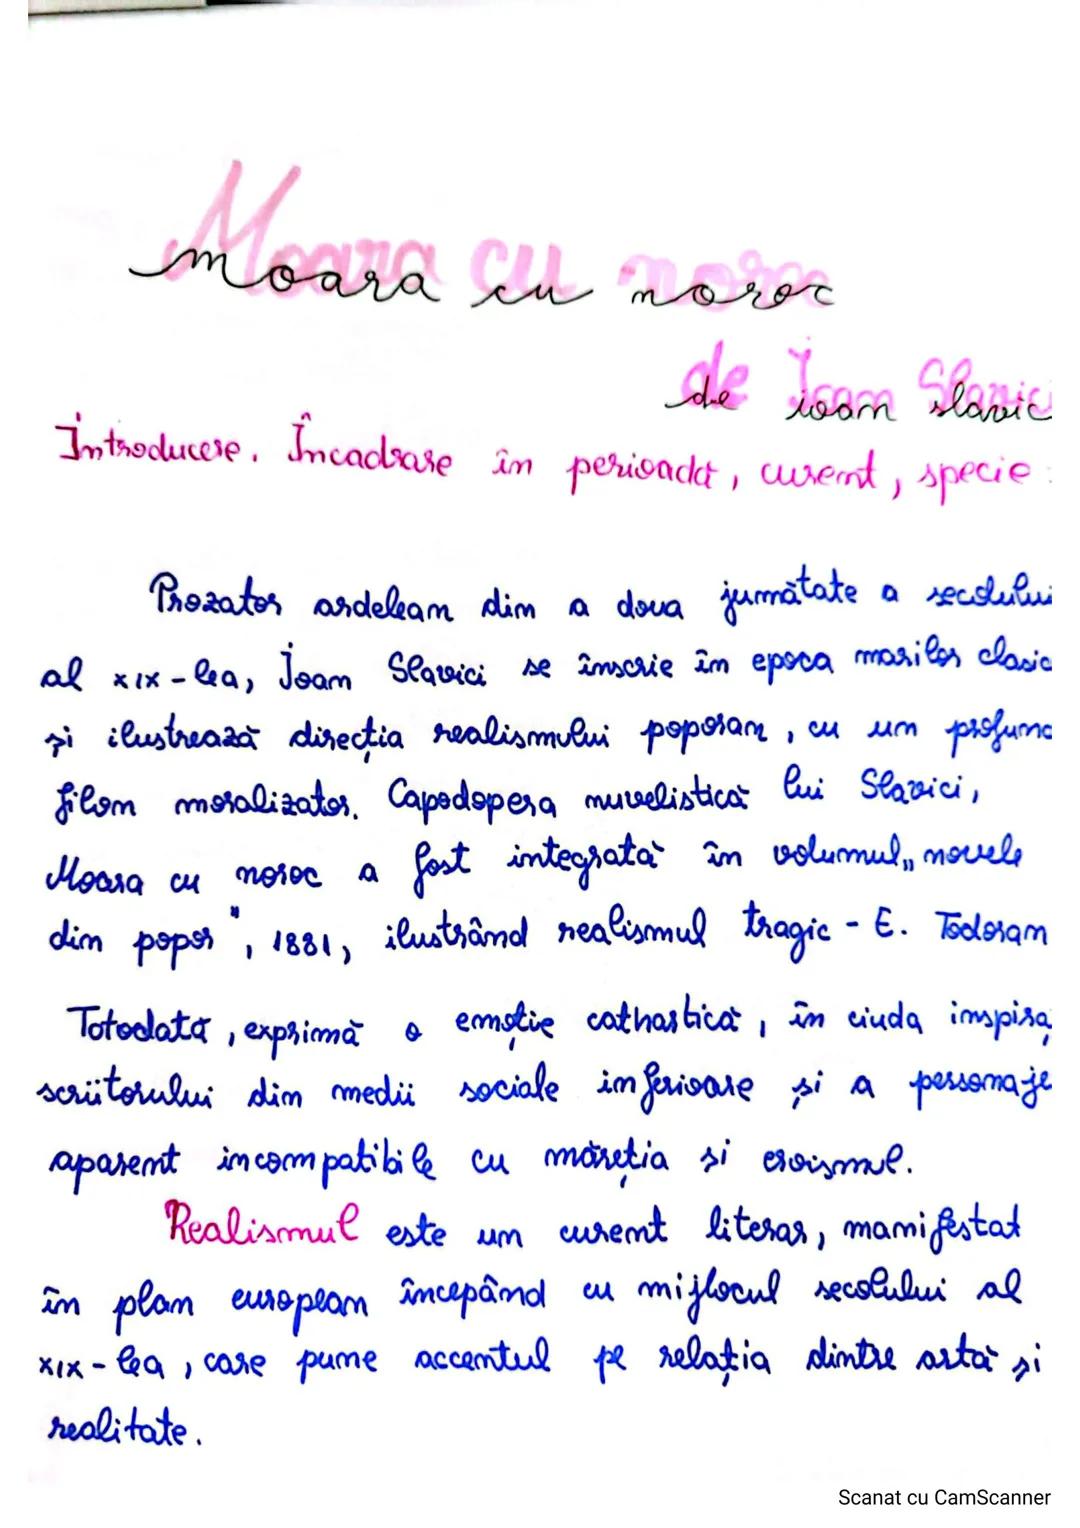 Moara cu noroc
de Ioan Slavici
Introducere. Încadrare în perioadă, curent, specie:
Prozator ardelean din a doua jumătate a secolului
al XIX-lea, Ioan Slavici se înscrie în epoca marilor clasic
și ilustrează direcția realismului poporan, cu un profund
filon moralizator. Capodopera nuvelistică lui Slavici,
Moara cu noroc a fost integrată în volumul „novele
din popor", 1881, ilustrând realismul tragic - E. Todoran
Totodată, exprimă o emoție cathartică, în ciuda inspira
scriitorului din medii sociale inferioare și a personaje
aparent incompatibile cu măreția si eroismul.
Realismul este un curent literar, manifestat
în plan european începând cu mijlocul secolului al
XIX-lea, care pune accentul pe relația dintre artă și
realitate.
Scanat cu CamScanner